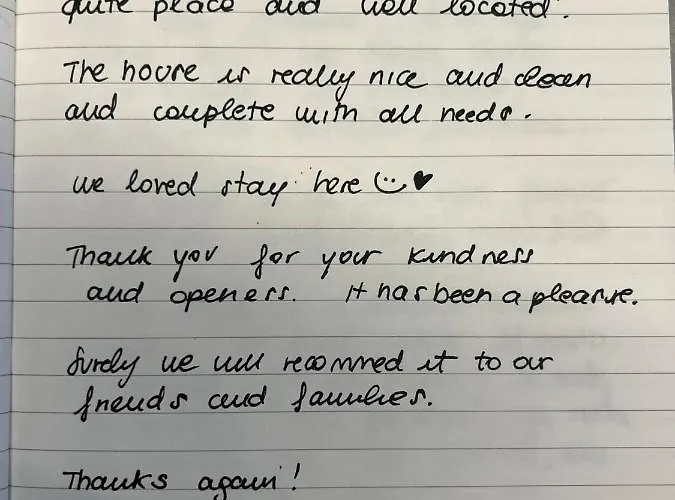 quite place and well located.
The house is really nice and clean
and complete with all needs.
we loved stay here
Thank you for your kindness
and openess. It has been a pleasure.
Surely we will recommed it to our
friends and families.
Thanks again!